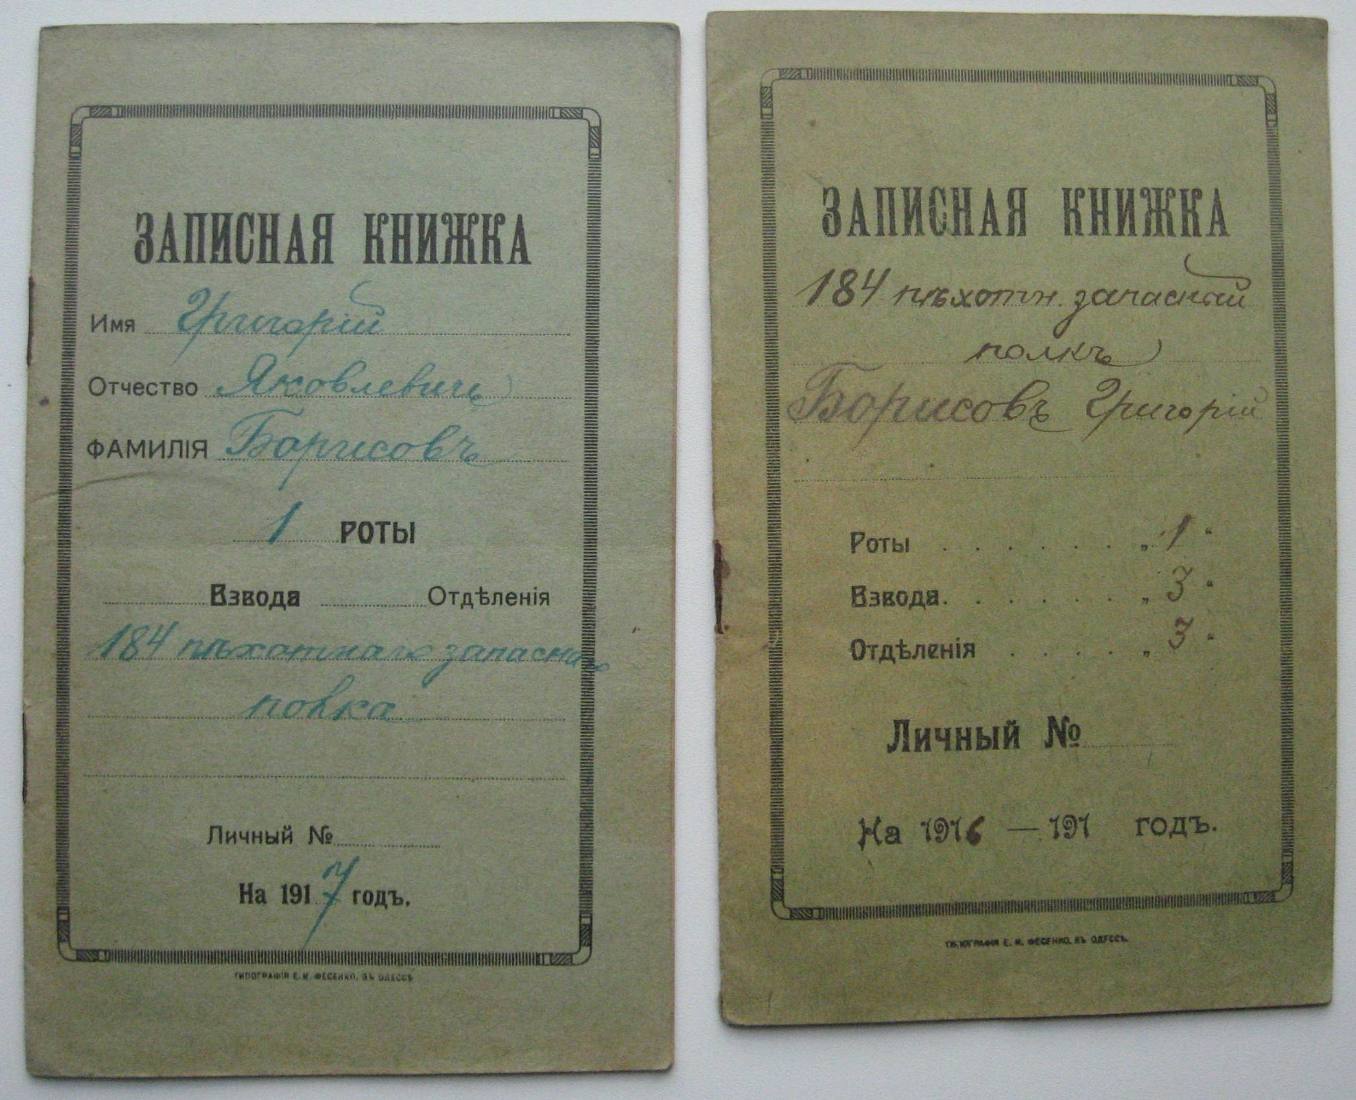 ЗАПИСНАЯ КНИЖКА
Имя Григорій
Отчество Яковлевичъ
ФАМИЛІЯ Борисовъ
1 РОТЫ
Взвода Отдѣленія
184 пѣхотнаго запасного
полка
Личный №
На 1917 годъ.
ТИПОГРАФІЯ Е. И. ФЕСЕНКО, ВЪ ОДЕССѢ
ЗАПИСНАЯ КНИЖКА
184 пѣхотн. запасный
полкъ
Борисовъ Григорій
Роты . . . . . . . „ 1 "
Взвода. . . . . . . „ 3 "
Отдѣленія . . . . . „ 3 "
Личный №
На 1916 — 191 годъ.
ТИПОГРАФІЯ Е. И. ФЕСЕНКО, ВЪ ОДЕССѢ.